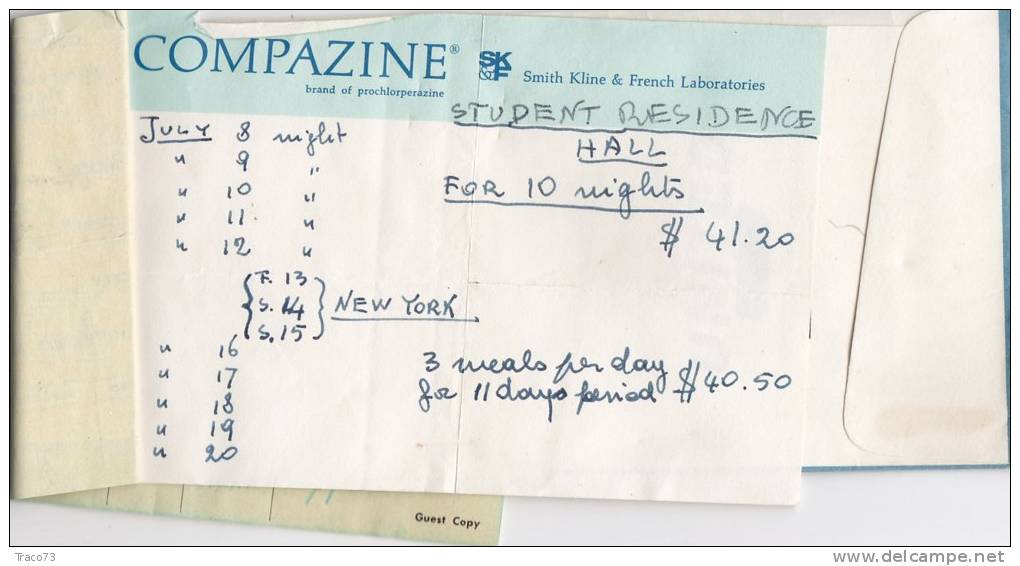 COMPAZINE®
brand of prochlorperazine
SK&F Smith Kline & French Laboratories
STUDENT RESIDENCE
HALL
FOR 10 nights
$ 41.20
JULY 8 night
" 9 "
" 10 "
" 11 "
" 12 "
F. 13
S. 14
S. 15
NEW YORK
" 16
" 17
" 18
" 19
" 20
3 meals per day
for 11 days period $40.50
Guest Copy
Traco73
www.delcampe.net